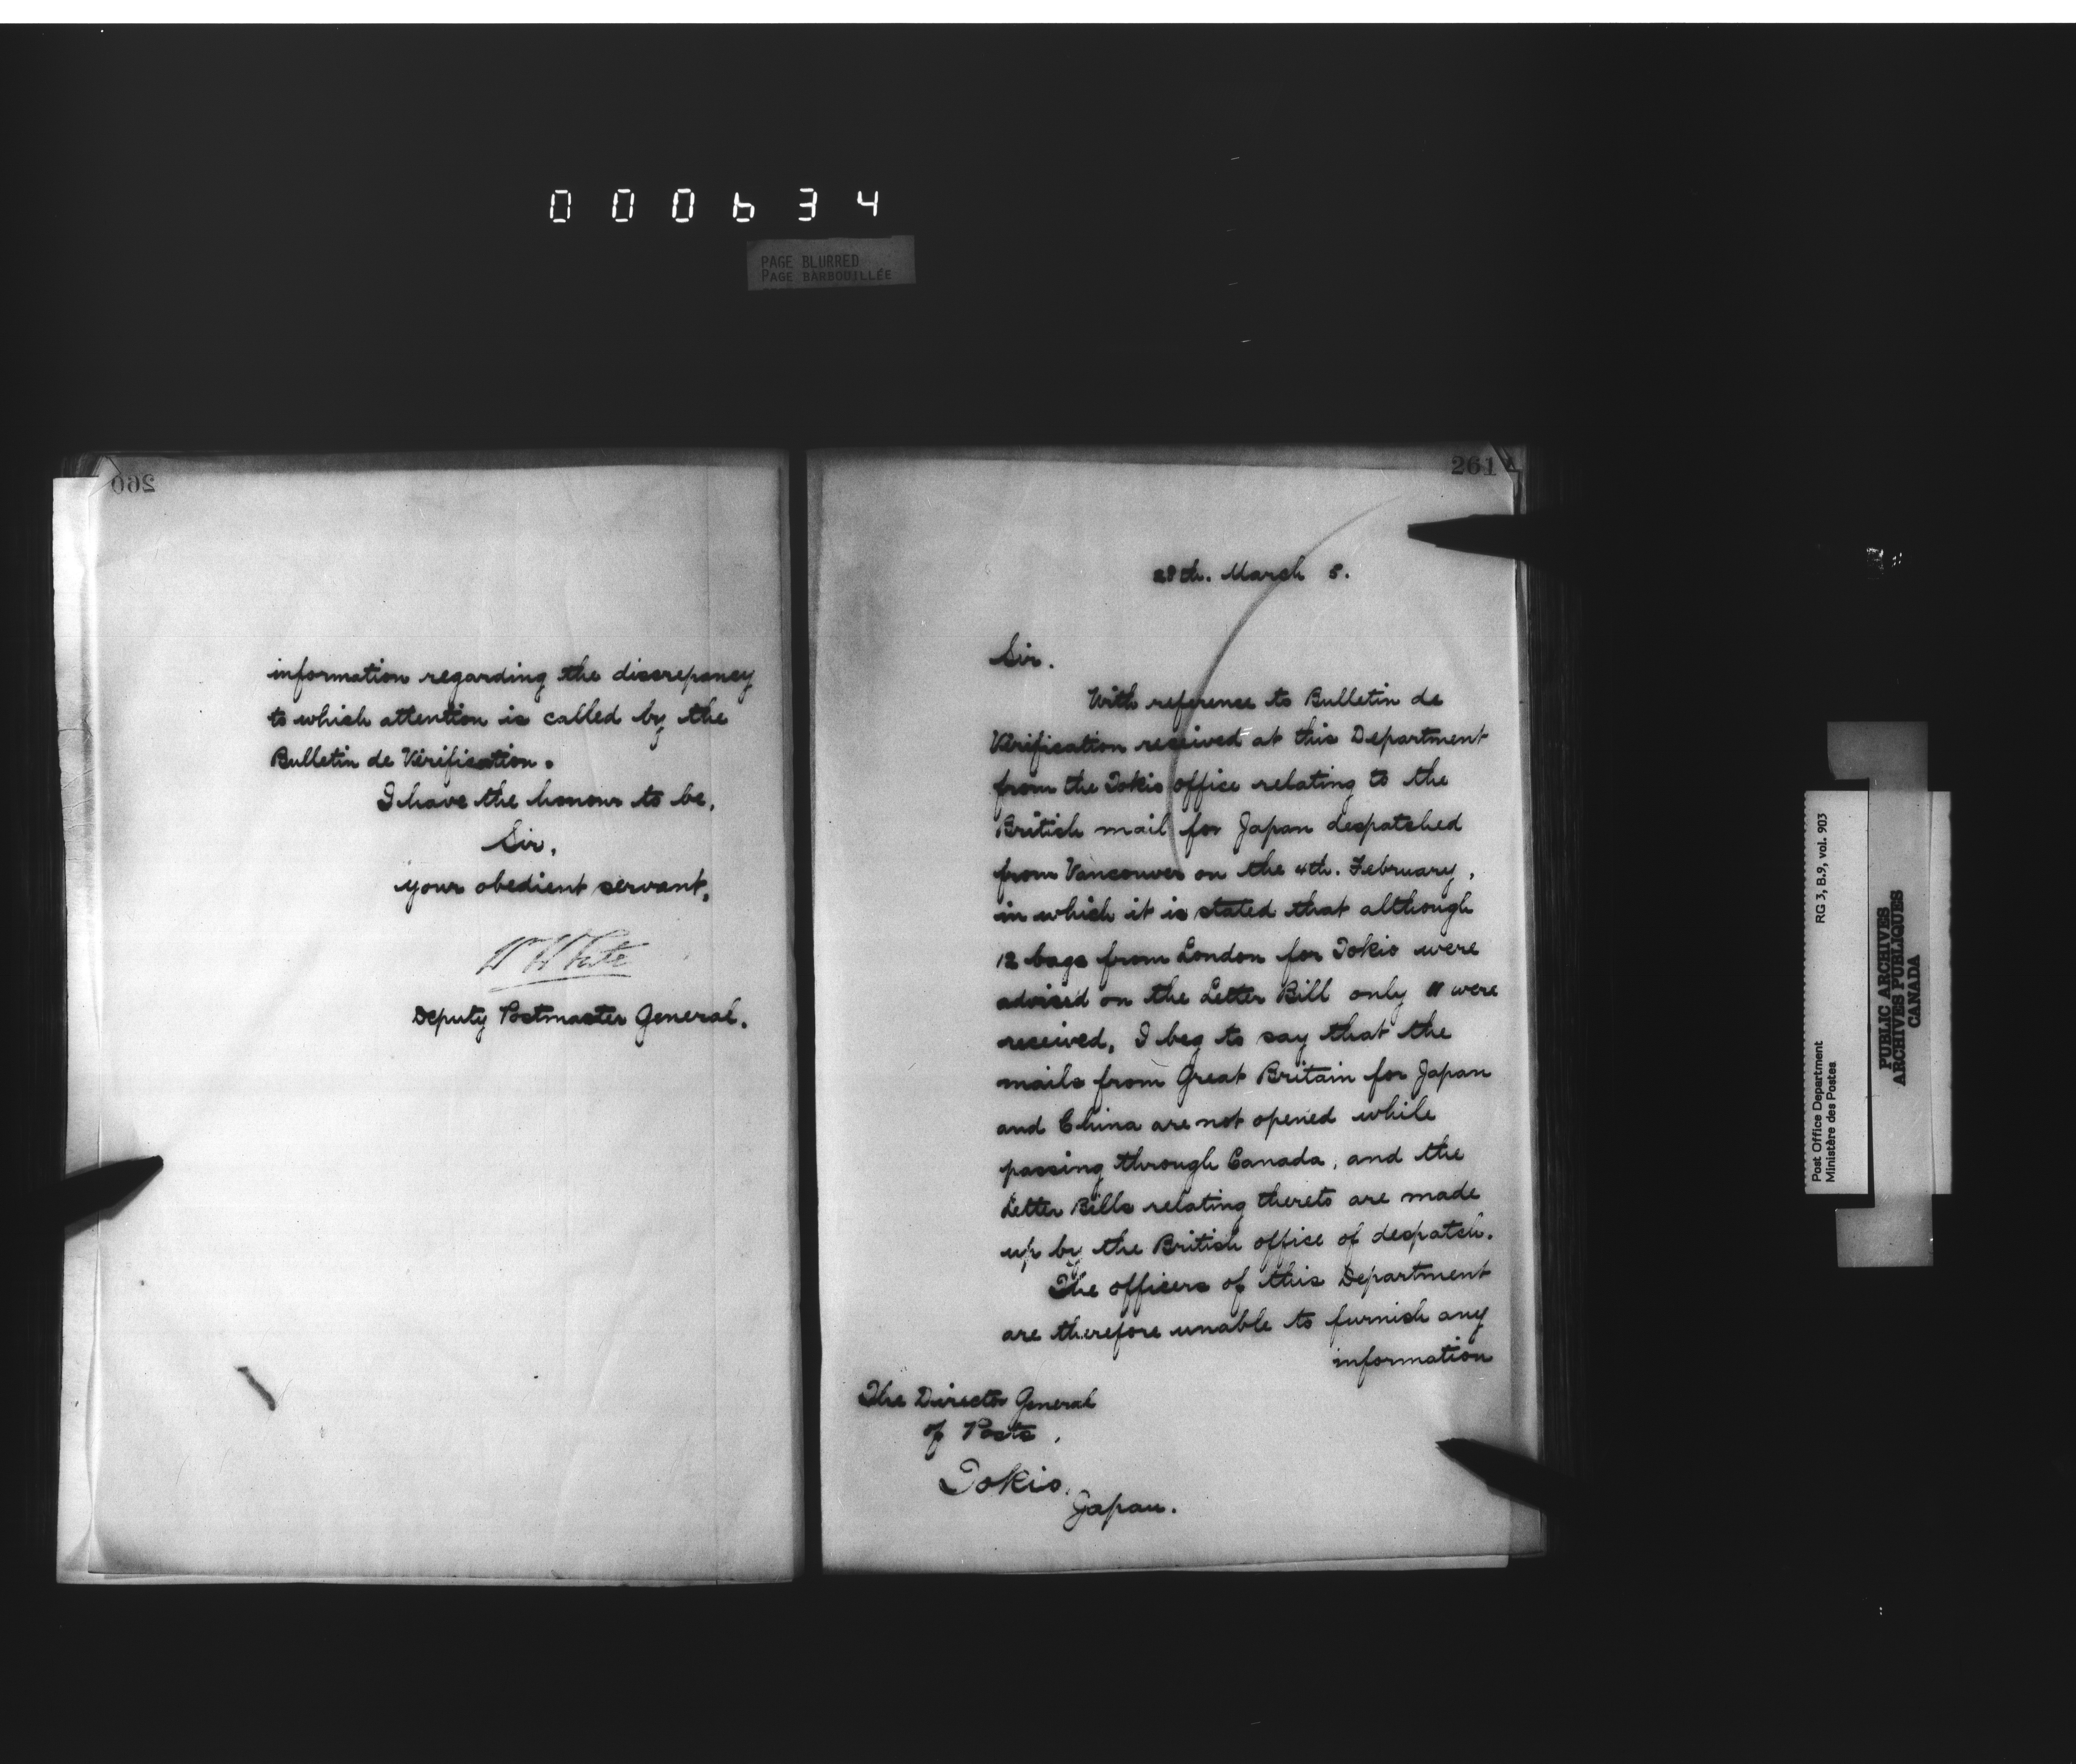 000634
PAGE BLURRED
PAGE BARBOUILLÉE
260
information regarding the discrepancy
to which attention is called by the
Bulletin de Verification.
I have the honour to be,
Sir,
your obedient servant,
W White
Deputy Postmaster General.
261
28th. March 5.
Sir.
With reference to Bulletin de
Verification received at this Department
from the Tokio office relating to the
British mail for Japan despatched
from Vancouver on the 4th. February,
in which it is stated that although
12 bags from London for Tokio were
advised on the Letter Bill only 11 were
received, I beg to say that the
mails from Great Britain for Japan
and China are not opened while
passing through Canada, and the
Letter Bills relating thereto are made
up by the British office of despatch.
The officers of this Department
are therefore unable to furnish any
information
The Director General
of Posts,
Tokio,
Japan.
Post Office Department
Ministère des Postes
RG 3, B.9, vol. 903
PUBLIC ARCHIVES
ARCHIVES PUBLIQUES
CANADA